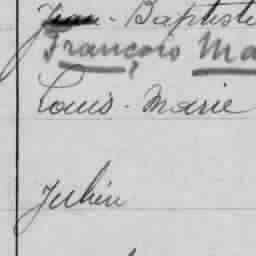 Jean - Baptiste
François Ma
Louis - Marie
Julien